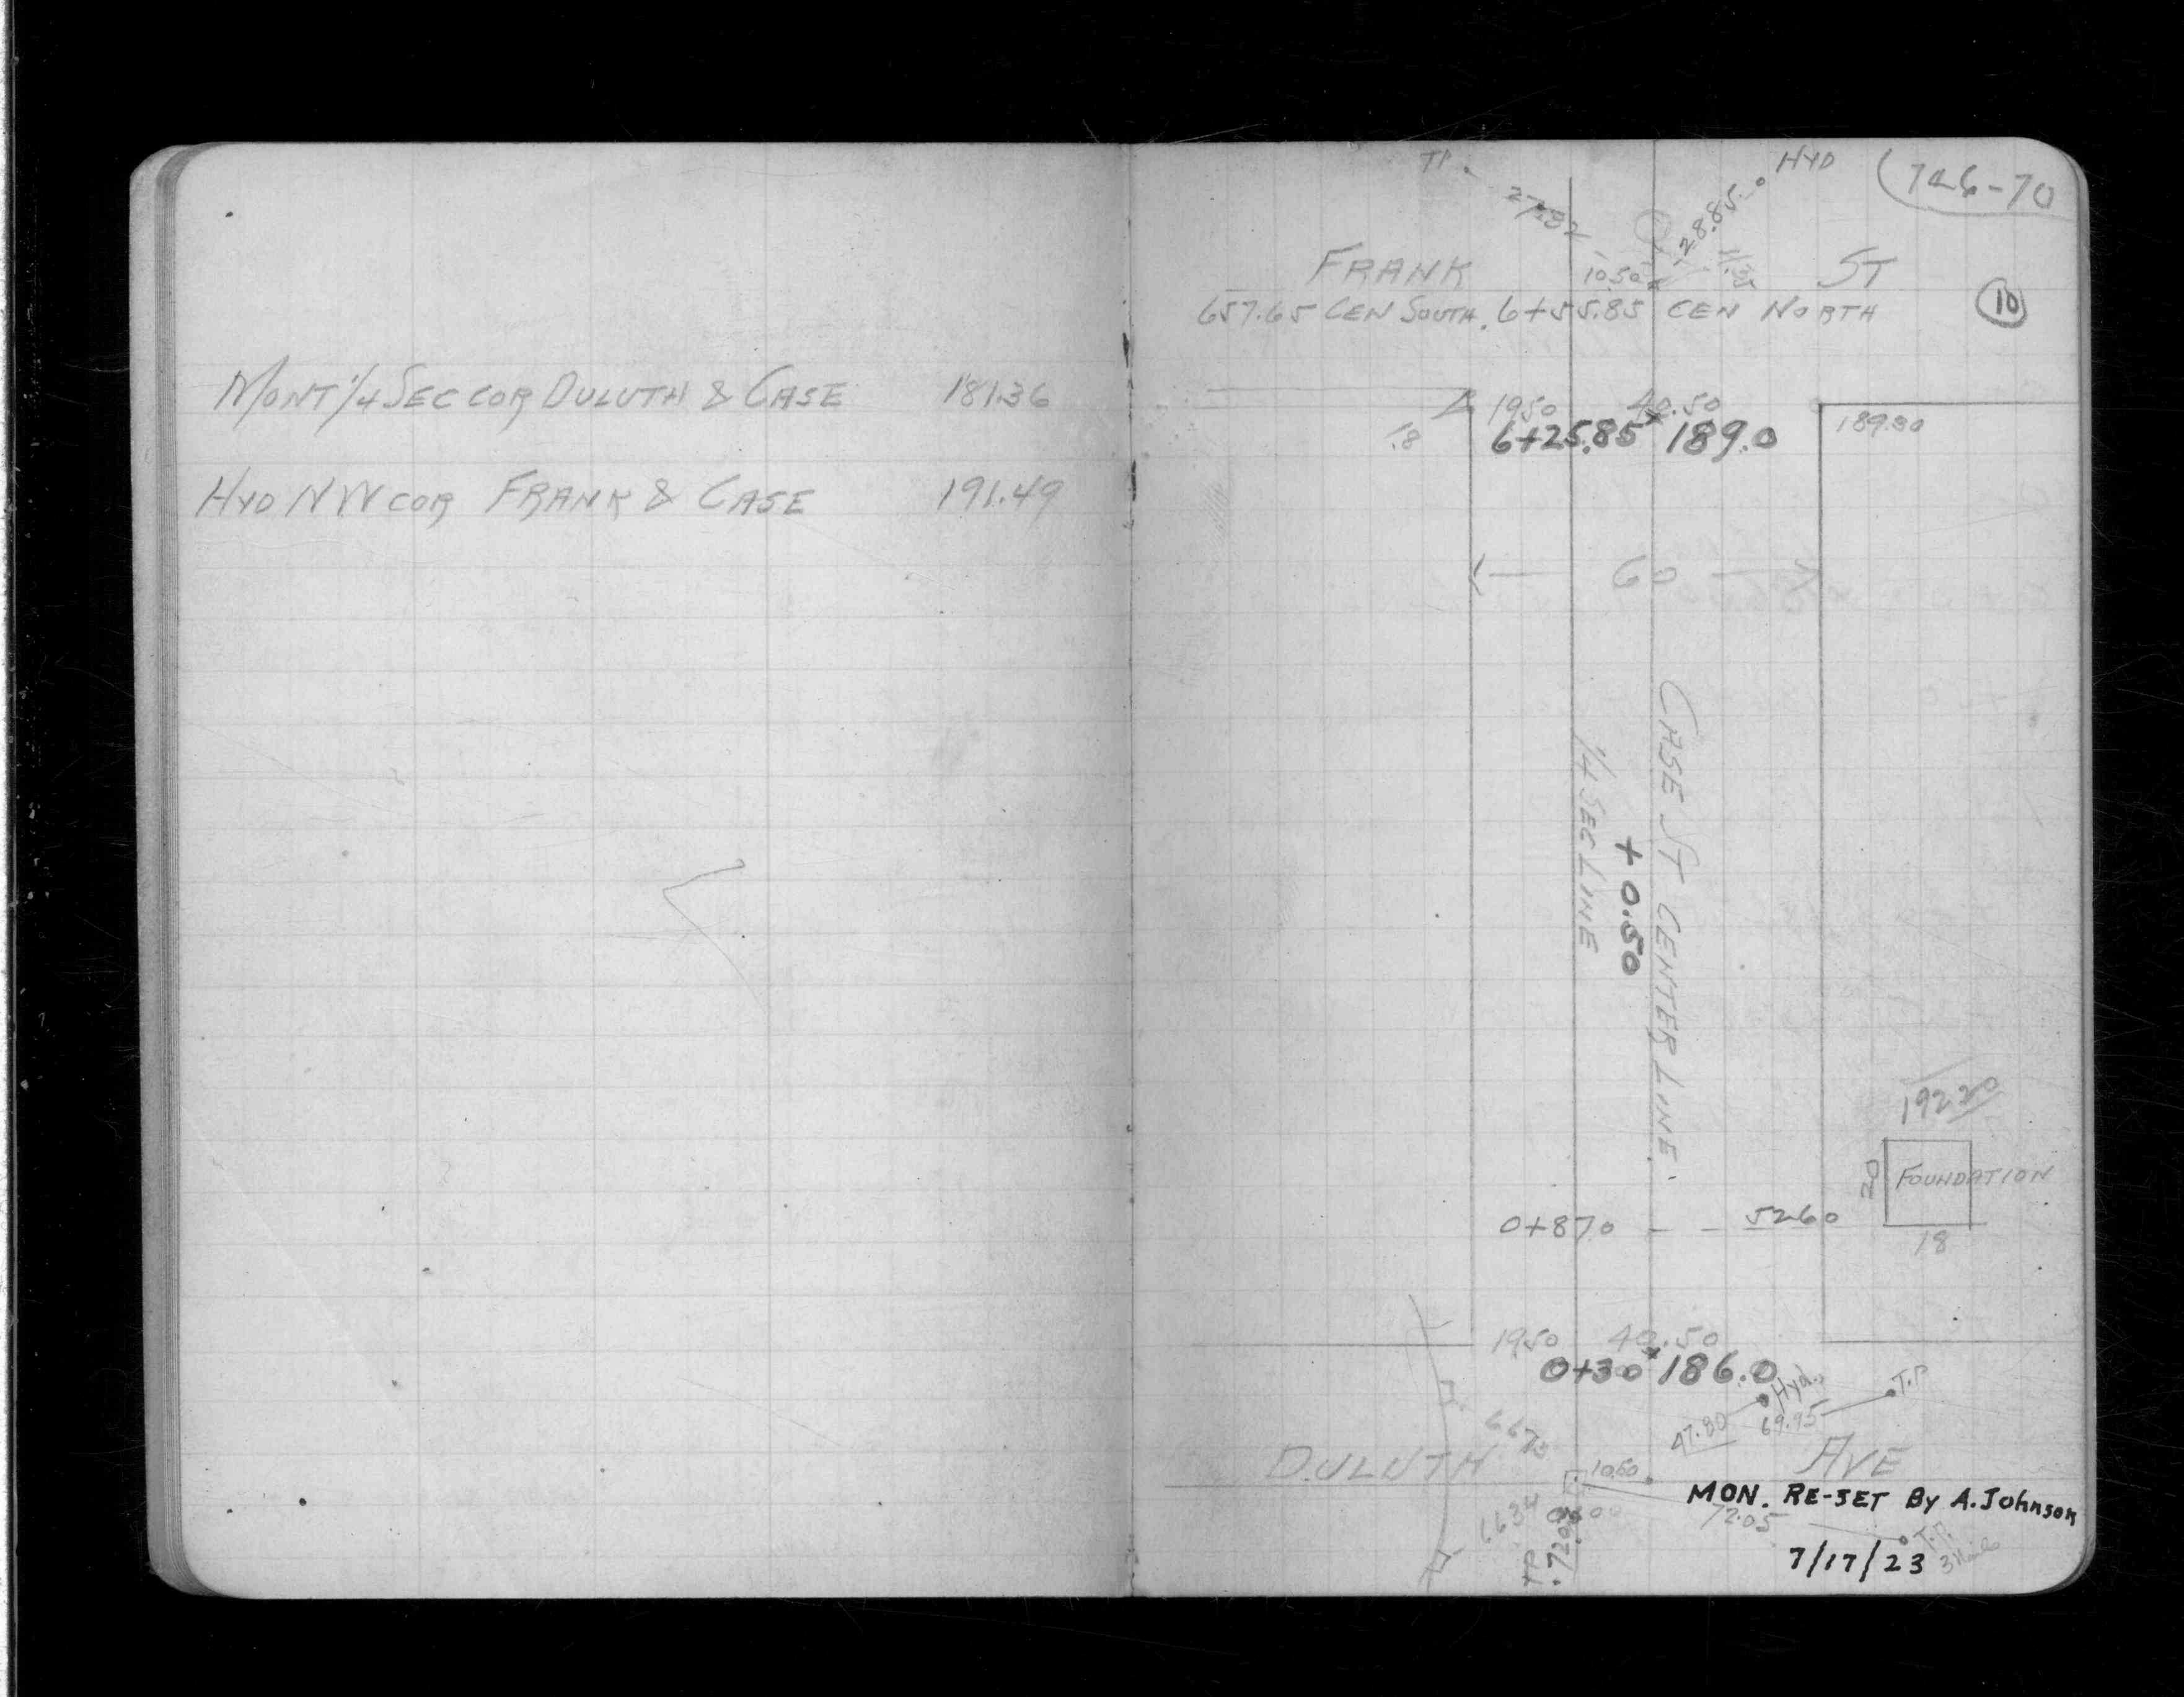 MONT 1/4 SEC COR DULUTH & CASE 181.36
HYD NW COR FRANK & CASE 191.49
746-70
HYD
28.85
27.82
FRANK ST
10.50
10
657.65 CEN SOUTH. 6+55.85 CEN NORTH
19.50 40.50
6+25.85 189.0
.8
189.30
60
CASE ST CENTER LINE
1/4 SEC LINE
+0.50
192.20
20
FOUNDATION
18
0+87.0 - - 52.60
19.50 40.50
0+30 186.0
Hyd.
T.P
47.80
69.95
DULUTH AVE
10.50
MON. RE-SET By A. Johnson
72.05
66.34
T.P.
7/17/23